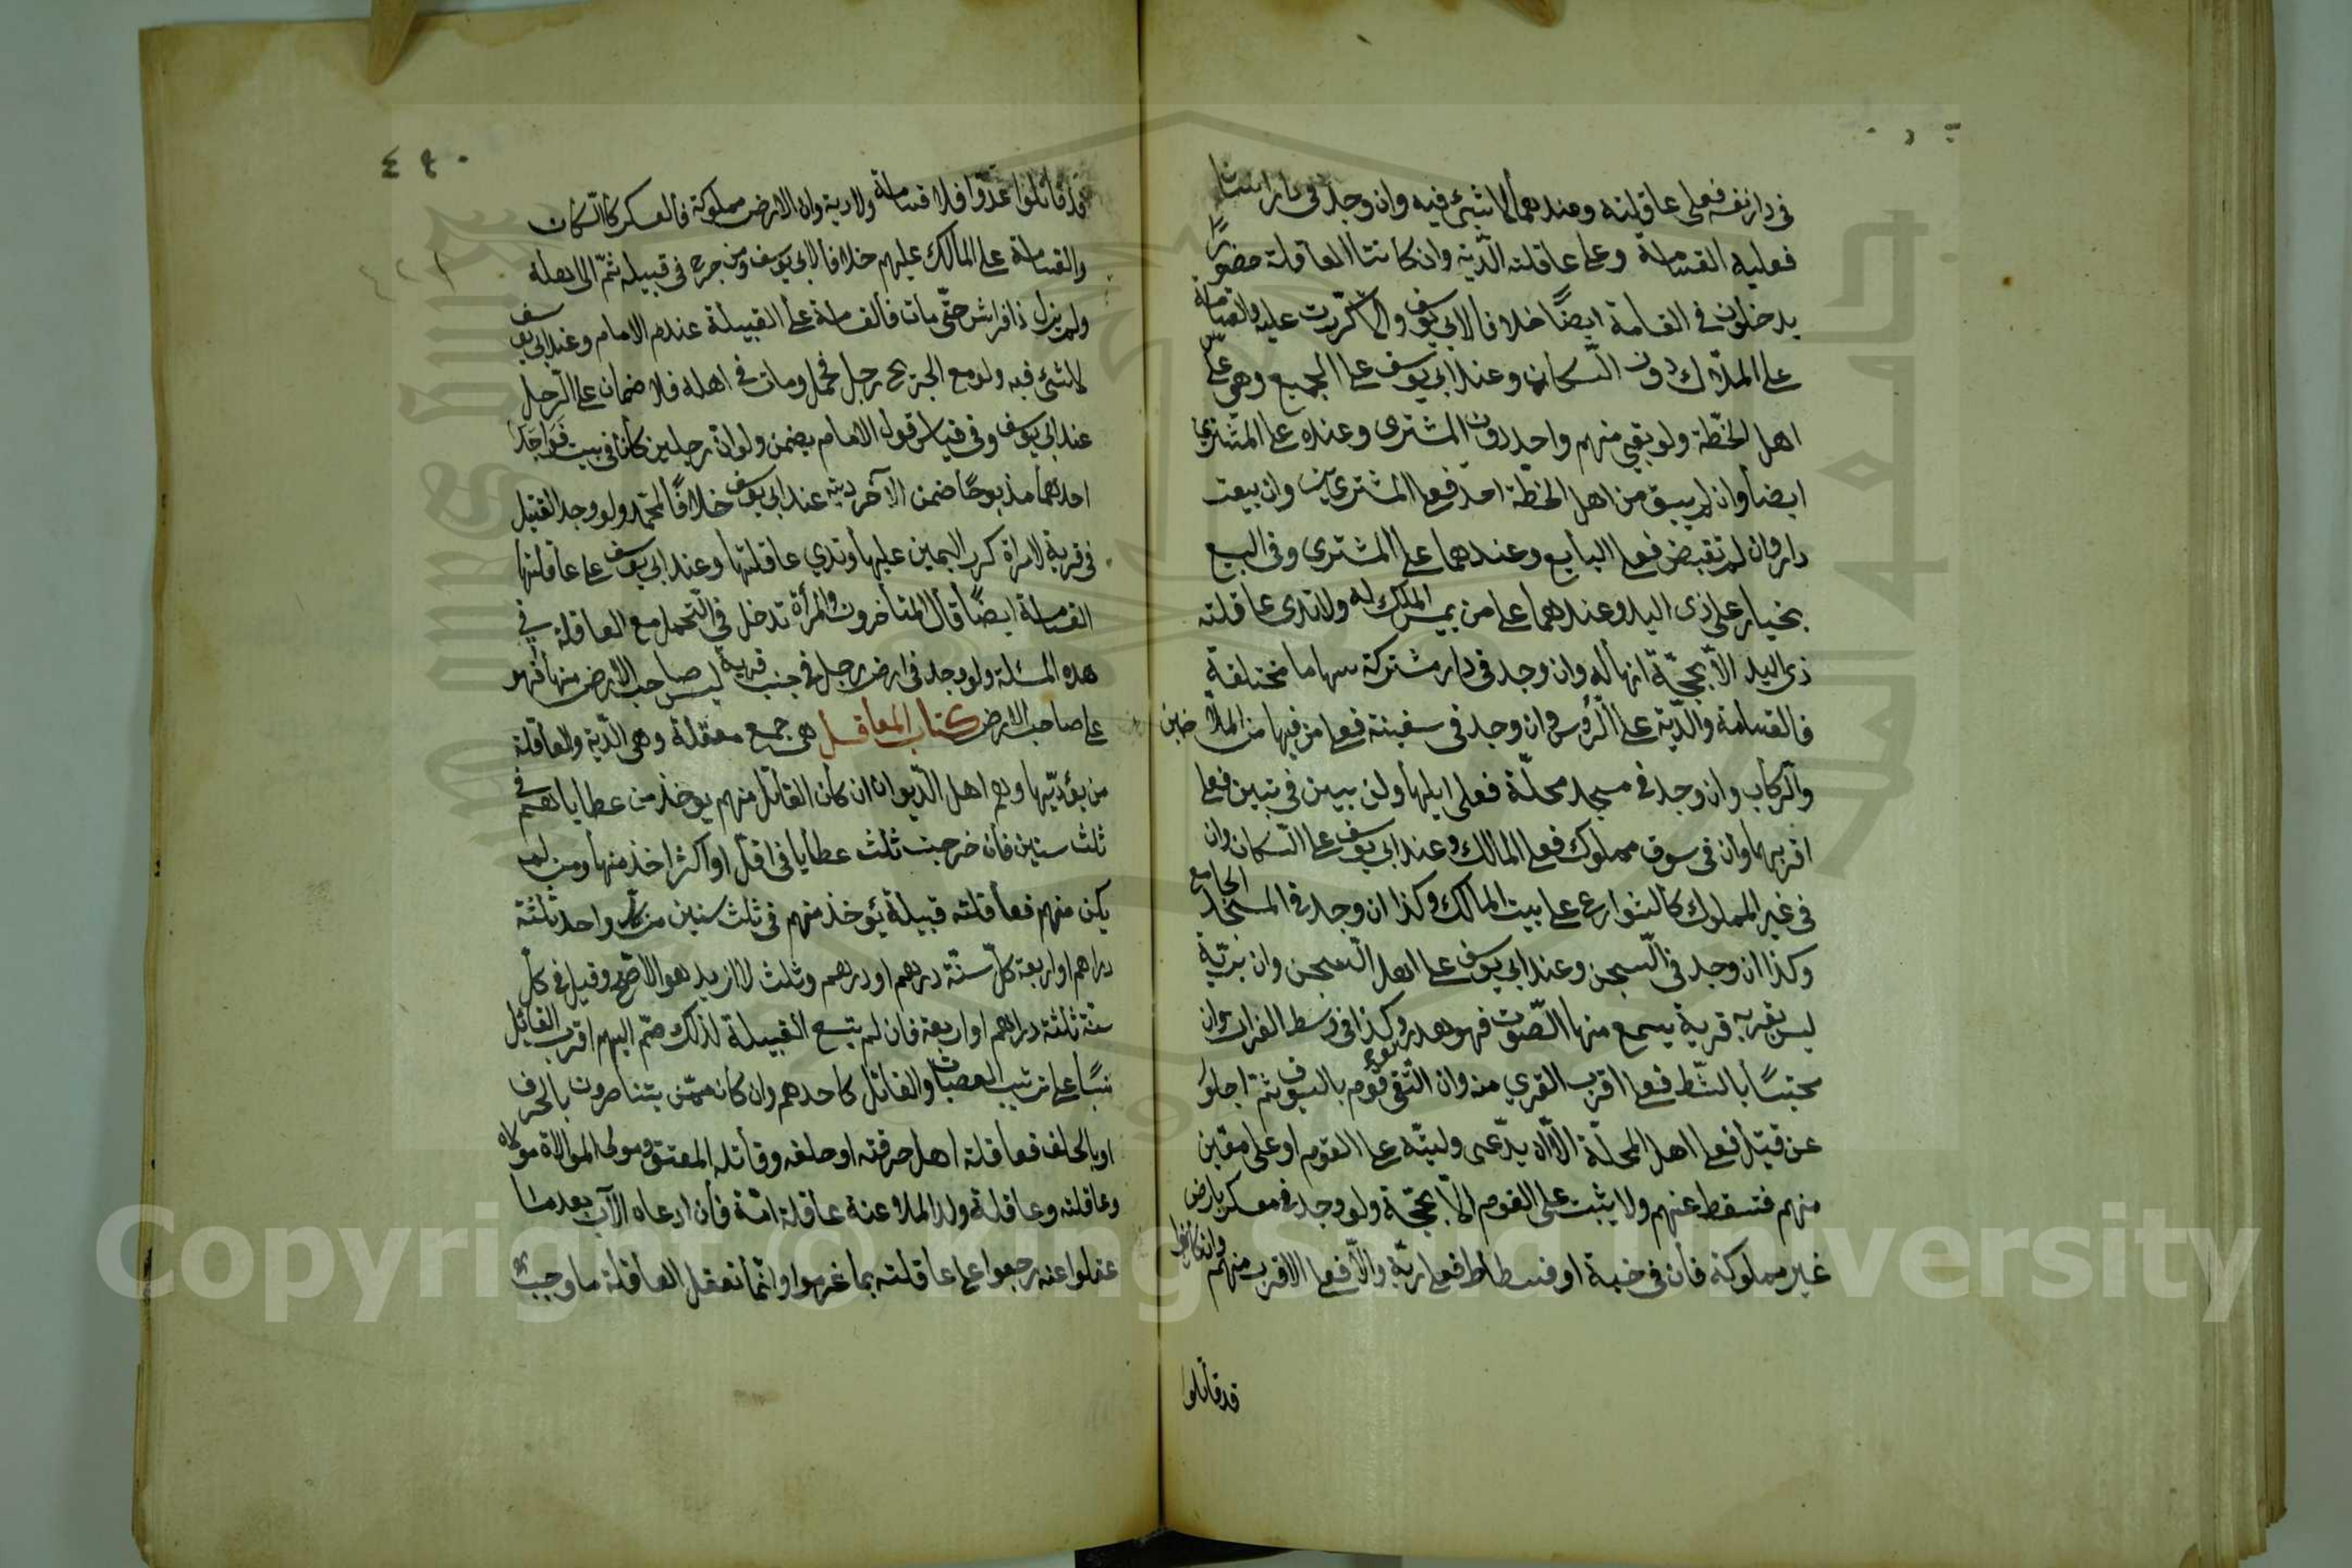 في دار نفسه فعلى عاقلته وعندهما لا شيئ فيه وان وجد في دار انسان
فعليه القسامة وعلى عاقلته الدّية وان كانت العاقلة حضورًا
يدخلون في القسامة ايضًا خلافا لابي يوسف والا كرّرت عليه والقسامة
على الملّاك دون السّكان وعند ابي يوسف على الجميع وهي على
اهل الخطّة ولو بقي منهم واحد دون المشترى وعنده على المشتري
ايضا وان لم يبق من اهل الخطّة احد فعلى المشتريين وان بيعت
دار وان لم تقبض فعلى البايع وعندهما على المشترى وفي البيع
بخيار على ذى اليد وعندهما على من يصير الملك له ولا تدى عاقلته
ذى اليد الّا بحجّة انها له وان وجد في دار مشتركة سهاما مختلفة
فالقسامة والدّية على الرّؤس وان وجد في سفينة فعلى من فيها من الملّاحين
والرّكاب وان وجد في مسجد محلّة فعلى اهلها وان بين قريتين فعلى
اقربهما وان في سوق مملوك فعلى المالك وعند ابي يوسف على السّكان وان
في غير المملوك كالشوارع على بيت المالك وكذا ان وجد في المسجد الجامع
وكذا ان وجد في السّجن وعند ابي يوسف على اهل السّجن وان ببرّية
ليس بقربه قرية يسمع منها الصّوت فهو هدر وكذا في وسط الفرات وان
محتبسًا بالشّط فعلى اقرب القرى منه وان التقى قوم بالسيوف ثمّ اجلوا
عن قتيل فعلى اهل المحلّة الّا ان يدّعى وليّه على القوم او على معيّن
منهم فتسقط عنهم ولا يثبت على القوم الّا بحجّة ولو وجد في معسكر بارض
غير مملوكة فان في خيمة او فسطاط فعلى ربّه والّا فعلى الاقرب منهم وان كانوا
قد قاتلوا
٤٩٠
قد قاتلوا عدوّا فلا قسامة ولا دية وان الارض مملوكة فالعسكر كالسّكان
والقسامة على المالك عليهم خلافا لابي يوسف ومن جرح في قبيلة ثمّ الى اهله
ولم يزل ذا فراش حتّى مات فالقسامة على القبيلة عند الامام وعند ابي يوسف
لا شئ فيه ولو مع الجريح رجل فحمل ومات في اهله فلا ضمان على الرّجل
عند ابي يوسف وفي قياس قول الامام يضمن ولو انّ رجلين كانا في بيت فوجد
احدهما مذبوحًا ضمن الآخر ديته عند ابي يوسف خلافًا لمحمّد ولو وجد القتيل
في قرية لامراة كرر اليمين عليها وتدي عاقلتها وعند ابي يوسف على عاقلتها
القسامة ايضًا قال المتأخرون والمرأة تدخل في التّحمل مع العاقلة في
هذه المسئلة ولو وجد في ارض رجل في جنب قرية ليس صاحب الارض منها فهو
على صاحب الارض كتاب المعاقل هى جمع معقلة وهى الدّية والعاقلة
من يؤدّيها وهم اهل الدّيوان ان كان القاتل منهم يوخذ من عطاياهم في
ثلث سنين فان خرجت ثلث عطايا في اقلّ او اكثر اخذ منها ومن لم
يكن منهم فعاقلته قبيلة يؤخذ منهم في ثلث سنين من كلّ واحد ثلثة
دراهم او اربعة كلّ سنّة درهم او درهم وثلث لا ازيد هو الاصّح وقيل في كلّ
سنة ثلثة دراهم او اربعة فان لم يتّسع القبيلة لذلك ضمّ اليهم اقرب القبائل
نسبًا على ترتيب العصبات والقاتل كاحدهم وان كان ممّن يتناصرون بالحرف
او بالحلف فعاقلة اهل حرفته او حلفه وعاقلة المعتق ومولى الموالاة مولاه
وعاقلته وعاقلة ولد الملاعنة عاقلة امّه فان ادعاه الآب بعد ما
عقلوا عنه رجعوا على عاقلته بما غرموا وانّما تعقل العاقلة ما وجب
Copyright © King Saud University